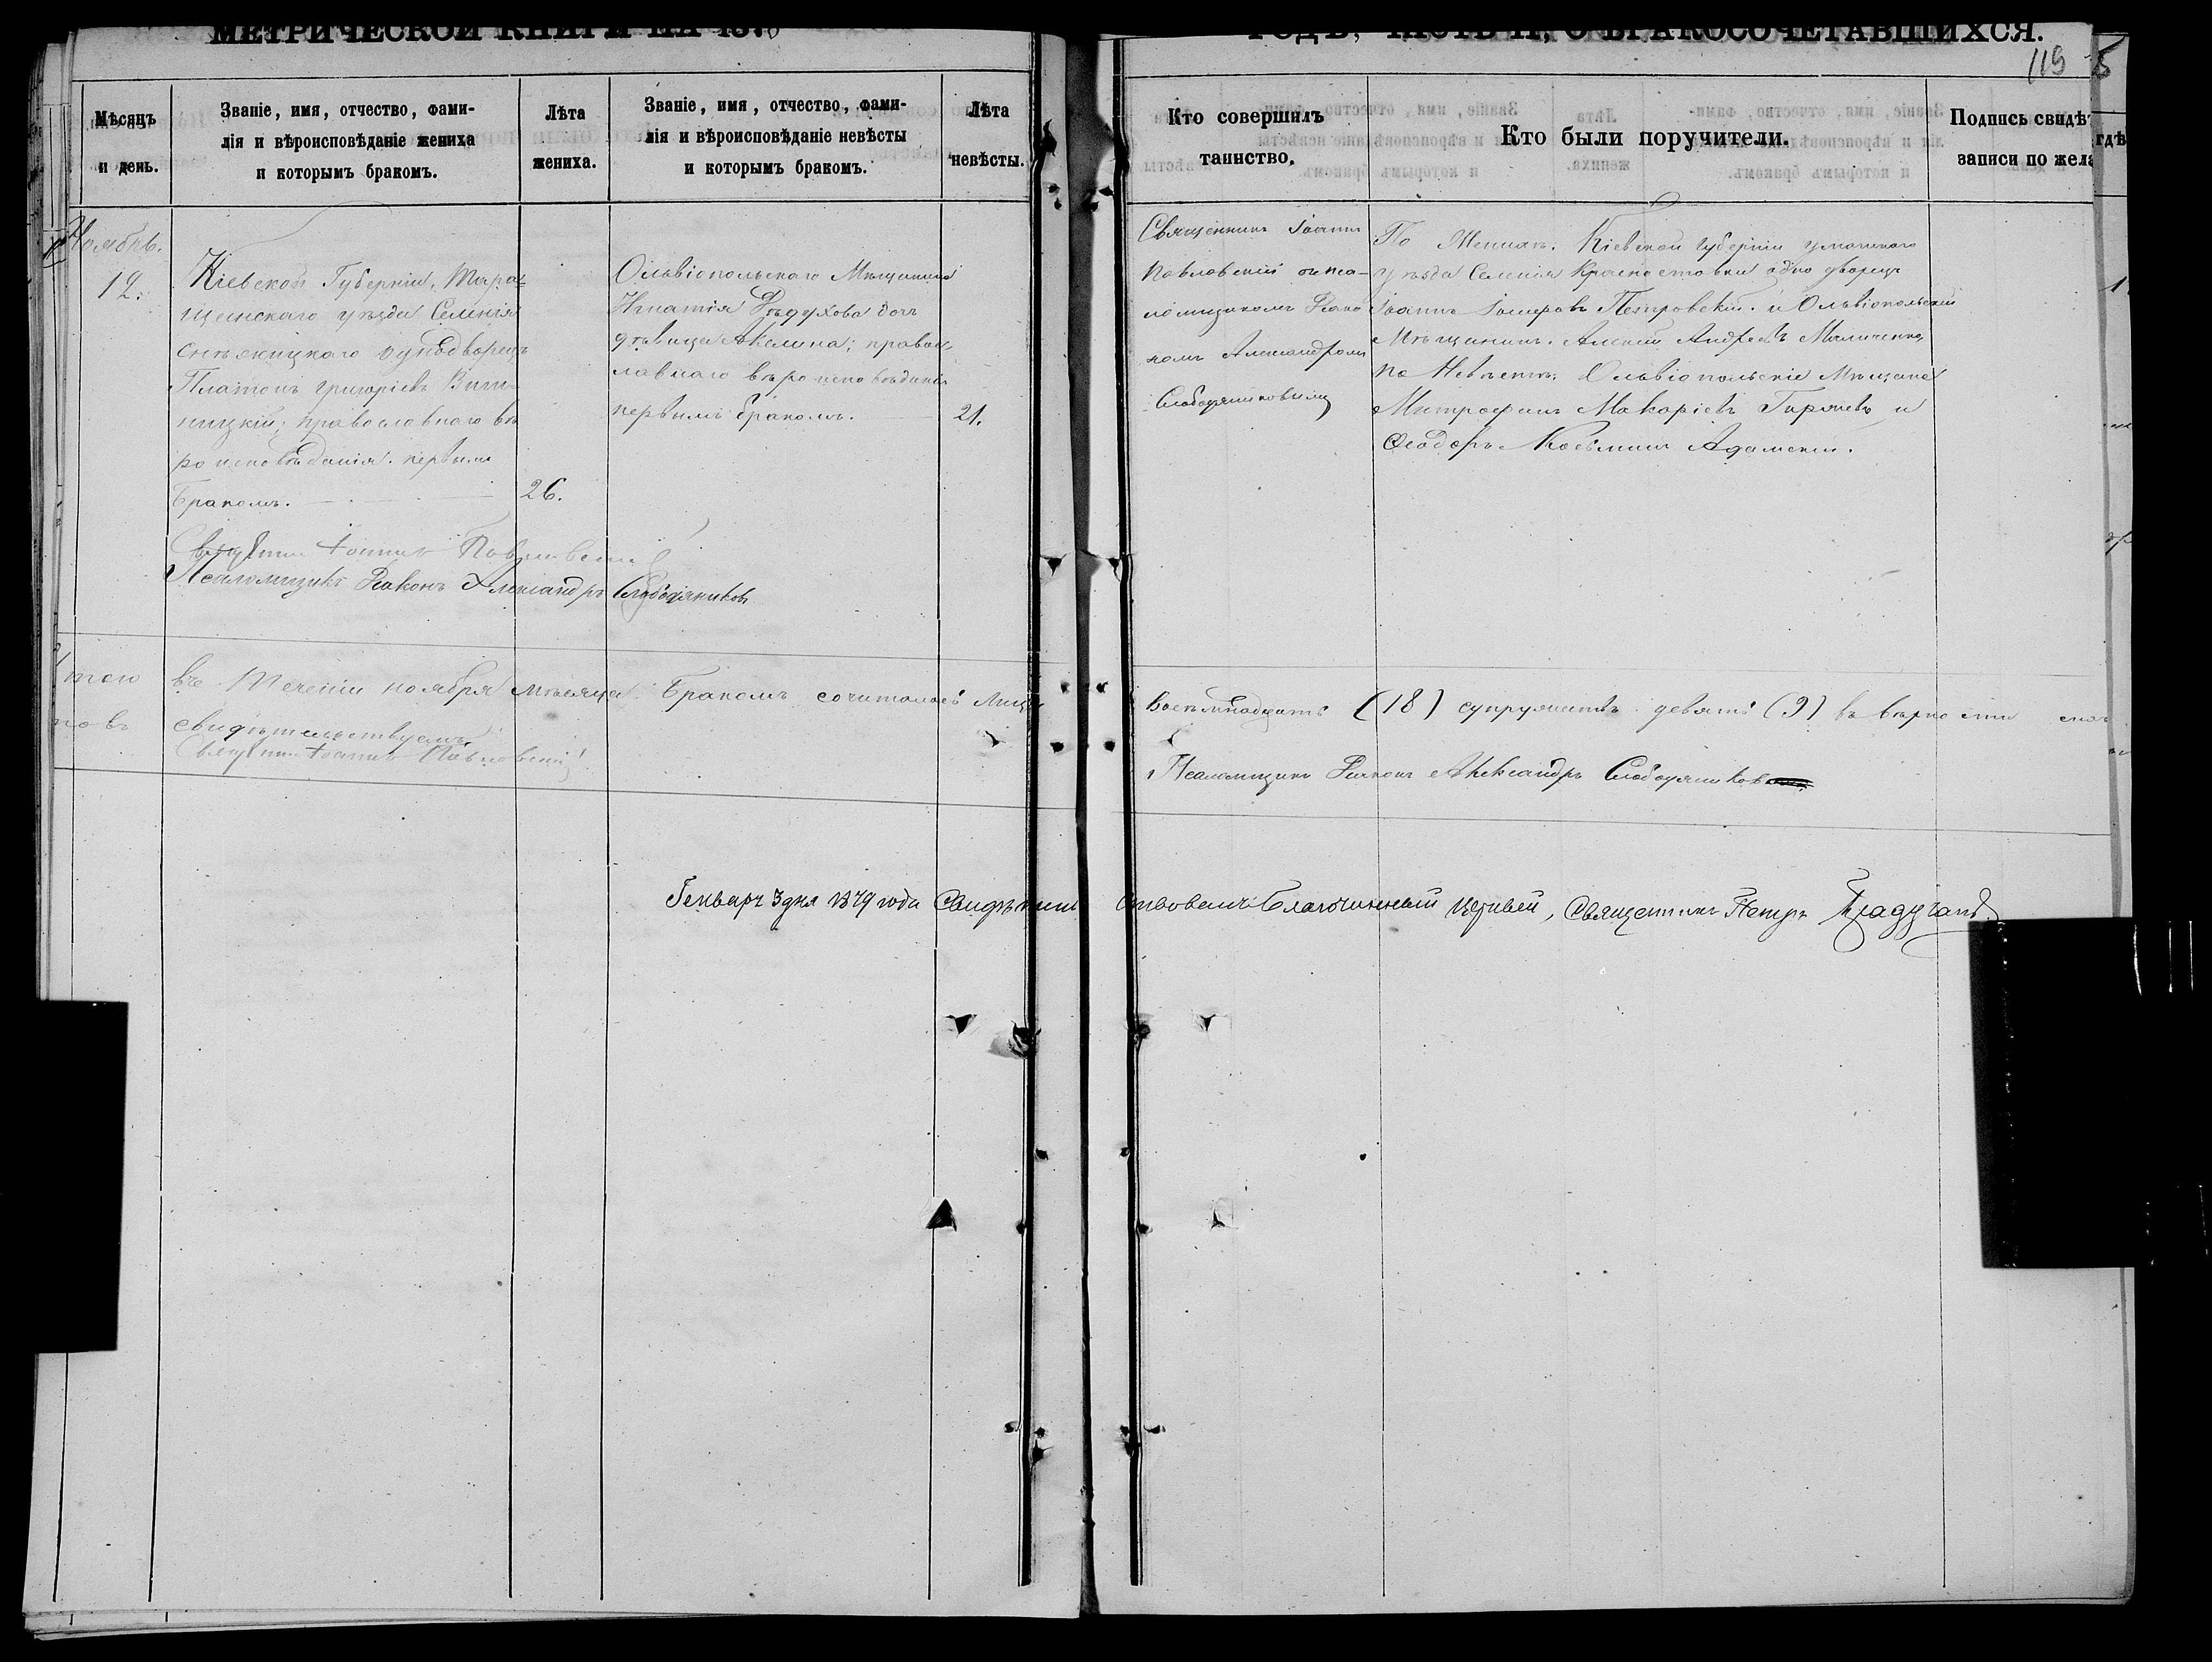 МЕТРИЧЕСКОЙ КНИГИ НА 187
ГОДЪ, ЧАСТЬ II, О БРАКОСОЧЕТАВШИХСЯ.
119
Мѣсяцъ
и день.
Званіе, имя, отчество, фами-
лія и вѣроисповѣданіе жениха
и которымъ бракомъ.
Лѣта
жениха.
Званіе, имя, отчество, фами-
лія и вѣроисповѣданіе невѣсты
и которымъ бракомъ.
Лѣта
невѣсты.
Кто совершилъ
таинство.
Кто были поручители.
Подпись свидѣт
записи по жела
гдѣ
Ноябрь.
12.
Кіевской Губерніи, Тара-
щенскаго уѣзда Селенія
однодворецъ
Платонъ Григоріевъ Вин-
ницкій; православнаго вѣ
роисповѣданія. первымъ
Бракомъ.
26.
Ольвіопольскаго Мѣщанина
Игнатія Рѣдухова дочь
дѣвица Акилина; правос
лавнаго вѣроисповѣданія
первымъ бракомъ.
21.
Священникъ Іоаннъ
Павловскій съ пса-
ломщикомъ Діако
номъ Александромъ
Слободяниковымъ
По Женихѣ. Кіевской губерніи уманскаго
уѣзда Селенія Краснотавки однодворецъ
Іоаннъ Іосифовъ Петровскій. и Ольвіопольскій
Мѣщанинъ. Алексій Андреевъ Маличенко
по Невѣстѣ: Ольвіопольскіе Мѣщане
Митрофанъ Макаріевъ Гиржевъ и
Ѳеодоръ Косьминъ Адамскій.
Священникъ Іоаннъ Павловскій
Псаломщикъ Діаконъ Александръ Слободяниковъ
въ Теченіи ноября мѣсяца. Бракомъ сочиталось лицъ
Восемьнадцать (18) супружествъ девять (9) въ вѣрности
свидѣтельствуемъ
Священникъ Іоаннъ Павловскій
Псаломщикъ Діаконъ Александръ Слободяниковъ
Генваря 3 дня 1879 года Свидѣтельствовалъ Благочинный Церквей, Священникъ Петръ